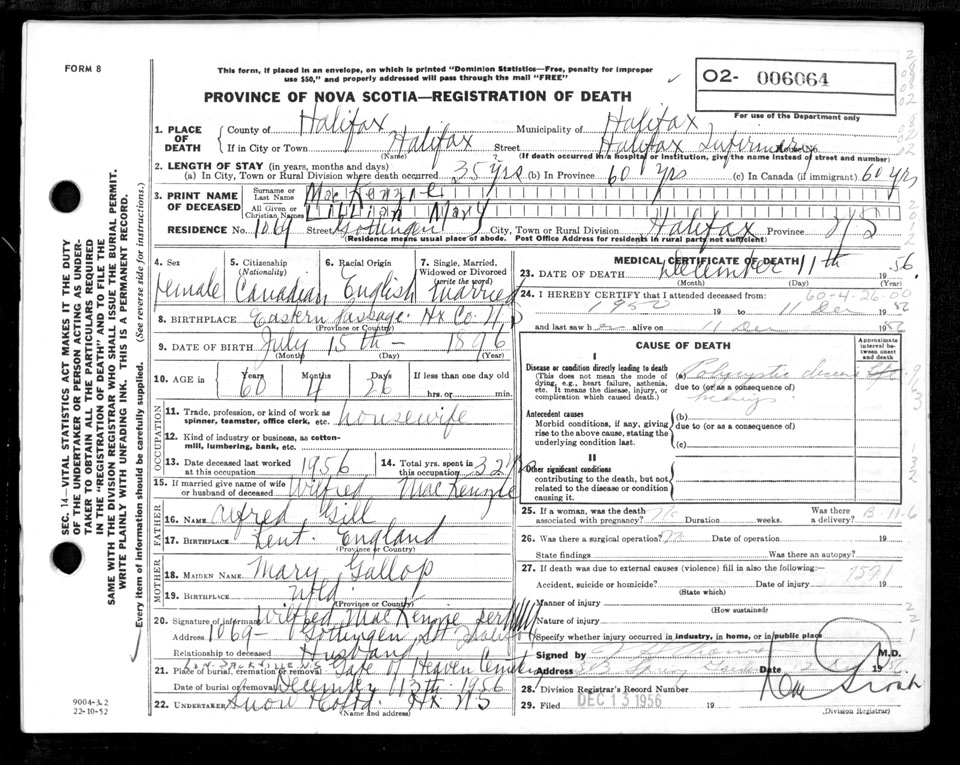 FORM 8
This form, if placed in an envelope, on which is printed "Dominion Statistics—Free, penalty for improper
use $50," and properly addressed will pass through the mail "FREE"
02- 006064
For use of the Department only
PROVINCE OF NOVA SCOTIA—REGISTRATION OF DEATH
SEC. 14—VITAL STATISTICS ACT MAKES IT THE DUTY
OF THE UNDERTAKER OR PERSON ACTING AS UNDER-
TAKER TO OBTAIN ALL THE PARTICULARS REQUIRED
IN THE "REGISTRATION OF DEATH" AND TO FILE THE
SAME WITH THE DIVISION REGISTRAR WHO SHALL ISSUE THE BURIAL PERMIT.
WRITE PLAINLY WITH UNFADING INK. THIS IS A PERMANENT RECORD.
Every item of information should be carefully supplied. (See reverse side for instructions.)
1. PLACE OF DEATH
County of Halifax Municipality of Halifax
If in City or Town Halifax Street Halifax
(Name) (If death occurred in a hospital or institution, give the name instead of street and number)
2. LENGTH OF STAY (in years, months and days)
(a) In City, Town or Rural Division where death occurred 35 yrs (b) In Province 60 yrs (c) In Canada (if immigrant) 60 yrs
3. PRINT NAME OF DECEASED
Surname or Last Name MacKenzie
All Given or Christian Names Lillian Mary
RESIDENCE No. 1069 Street Gottingen City, Town or Rural Division Halifax NS
(Residence means usual place of abode. Post Office Address for residents in rural parts not sufficient)
4. Sex Female
5. Citizenship (Nationality) Canadian
6. Racial Origin English
7. Single, Married, Widowed or Divorced (write the word) Married
8. BIRTHPLACE Eastern Passage Hx Co NS
(Province or Country)
9. DATE OF BIRTH July 15th— 1896
(Month) (Day) (Year)
10. AGE in Years 60 Months 4 Days 26 If less than one day old
hrs. or min.
OCCUPATION
11. Trade, profession, or kind of work as spinner, teamster, office clerk, etc. housewife
12. Kind of industry or business, as cotton-mill, lumbering, bank, etc.
13. Date deceased last worked at this occupation 1956
14. Total yrs. spent in this occupation 32
15. If married give name of wife or husband of deceased Wilfred MacKenzie
FATHER
16. NAME Alfred Gill
17. BIRTHPLACE Kent England
(Province or Country)
MOTHER
18. MAIDEN NAME Mary Gallop
19. BIRTHPLACE Nfld
(Province or Country)
20. Signature of informant Wilfred MacKenzie
Address 1069— Gottingen St Halifax
Relationship to deceased Husband
21. Place of burial, cremation or removal SACKVILLE N.S Gate of Heaven Cemetery
Date of burial or removal December 13th 1956
22. UNDERTAKER Snow Hx NS
(Name and address)
9004-3.2
22-10-52
MEDICAL CERTIFICATE OF DEATH
23. DATE OF DEATH December 11th 1956.
(Month) (Day) (Year)
60-4-26-00
24. I HEREBY CERTIFY that I attended deceased from:
1952 19 to 11 Dec 1956
and last saw her alive on 11 Dec 1956
CAUSE OF DEATH
Approximate interval between onset and death
I
Disease or condition directly leading to death
(This does not mean the mode of dying, e.g., heart failure, asthenia, etc. It means the disease, injury, or complication which caused death.)
(a) Polycystic disease
due to (or as a consequence of)
kidneys
Antecedent causes
Morbid conditions, if any, giving rise to the above cause, stating the underlying condition last.
(b)
due to (or as a consequence of)
(c)
II
Other significant conditions
contributing to the death, but not related to the disease or condition causing it.
25. If a woman, was the death associated with pregnancy? No Duration weeks. Was there a delivery? B-11-6
26. Was there a surgical operation? No Date of operation 19
State findings Was there an autopsy?
27. If death was due to external causes (violence) fill in also the following:—
Accident, suicide or homicide? Date of injury 19
(State which)
7571
Manner of injury
(How sustained)
Nature of injury
Specify whether injury occurred in industry, in home, or in public place
Signed by M.D.
Address Spring Garden Date 1956
28. Division Registrar's Record Number
29. Filed DEC 13 1956 19
(Division Registrar)